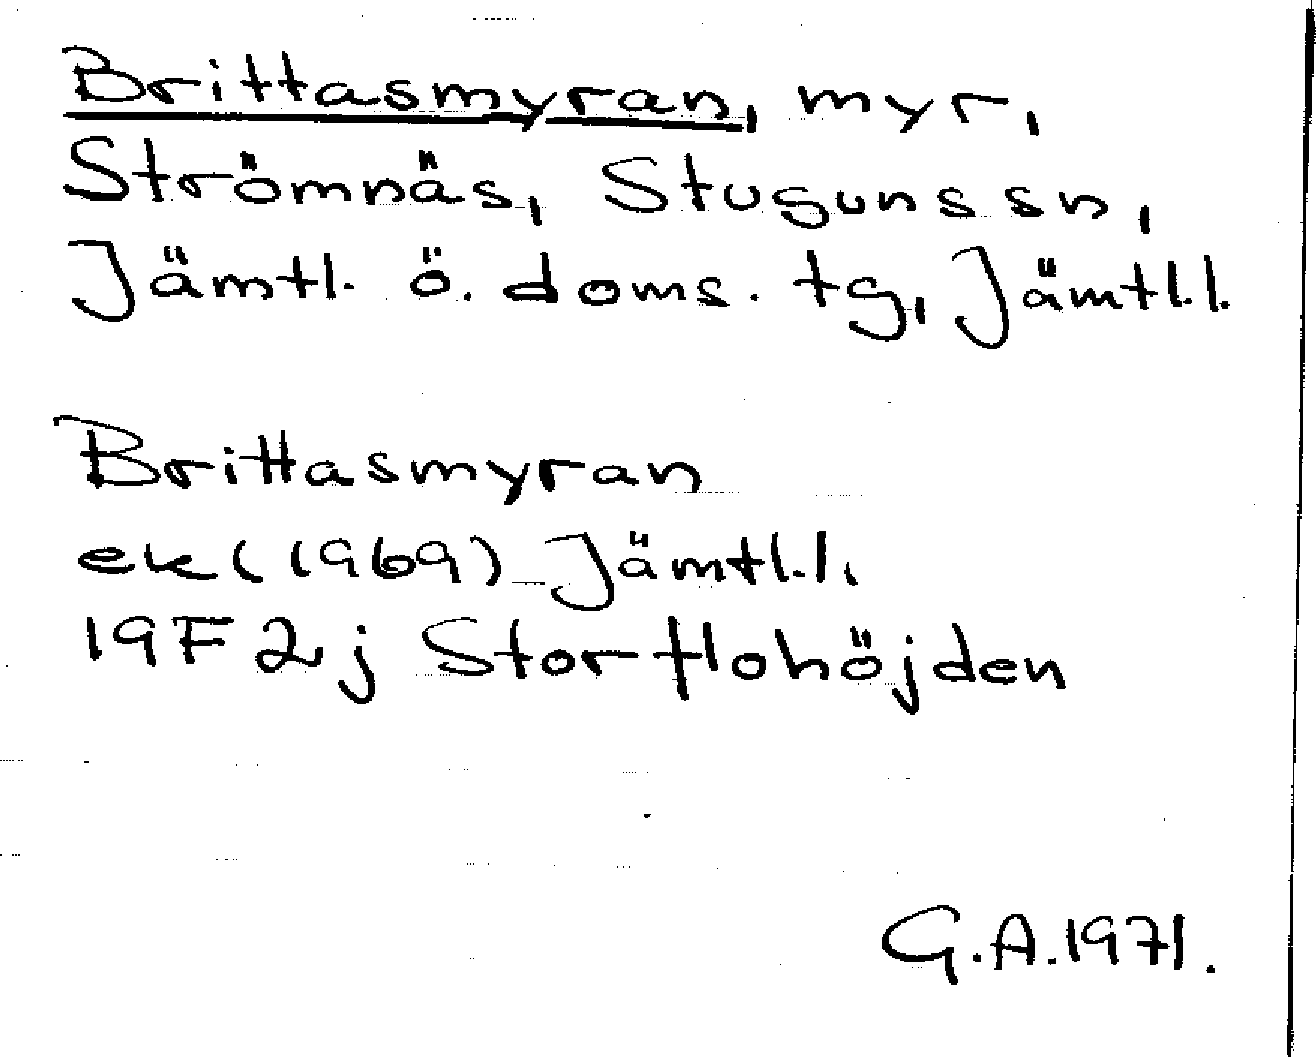 Brittasmyran, myr,
Strömnäs, Stuguns sn,
Jämtl. ö. doms. tg, Jämtl.l.
Brittasmyran
ek (1969) Jämtl.l.
19F 2j Storflohöjden
G.A.1971.